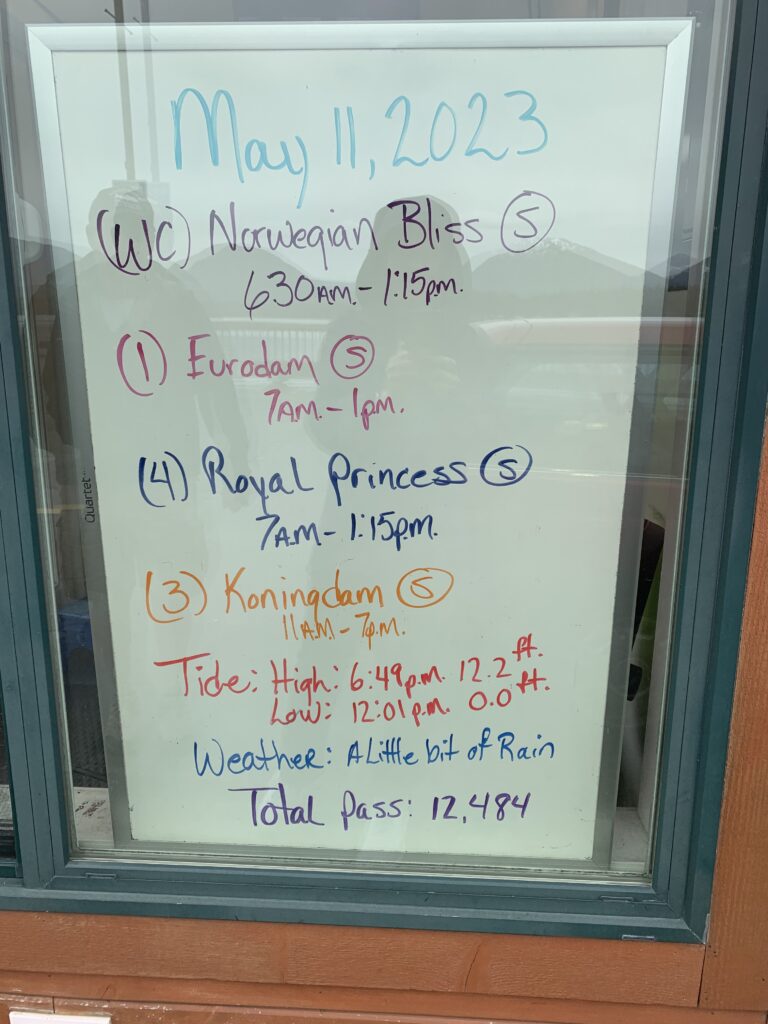 May 11, 2023
(WC) Norwegian Bliss Ⓢ
630AM. - 1:15p.m.
(1) Eurodam Ⓢ
7AM. - 1pm.
(4) Royal Princess Ⓢ
7AM - 1:15p.m.
(3) Koningdam Ⓢ
11AM. - 7p.m.
Tide: High: 6:49p.m. 12.2 ft.
Low: 12:01 p.m. 0.0 ft.
Weather: A Little bit of Rain
Total Pass: 12,484
Quartet